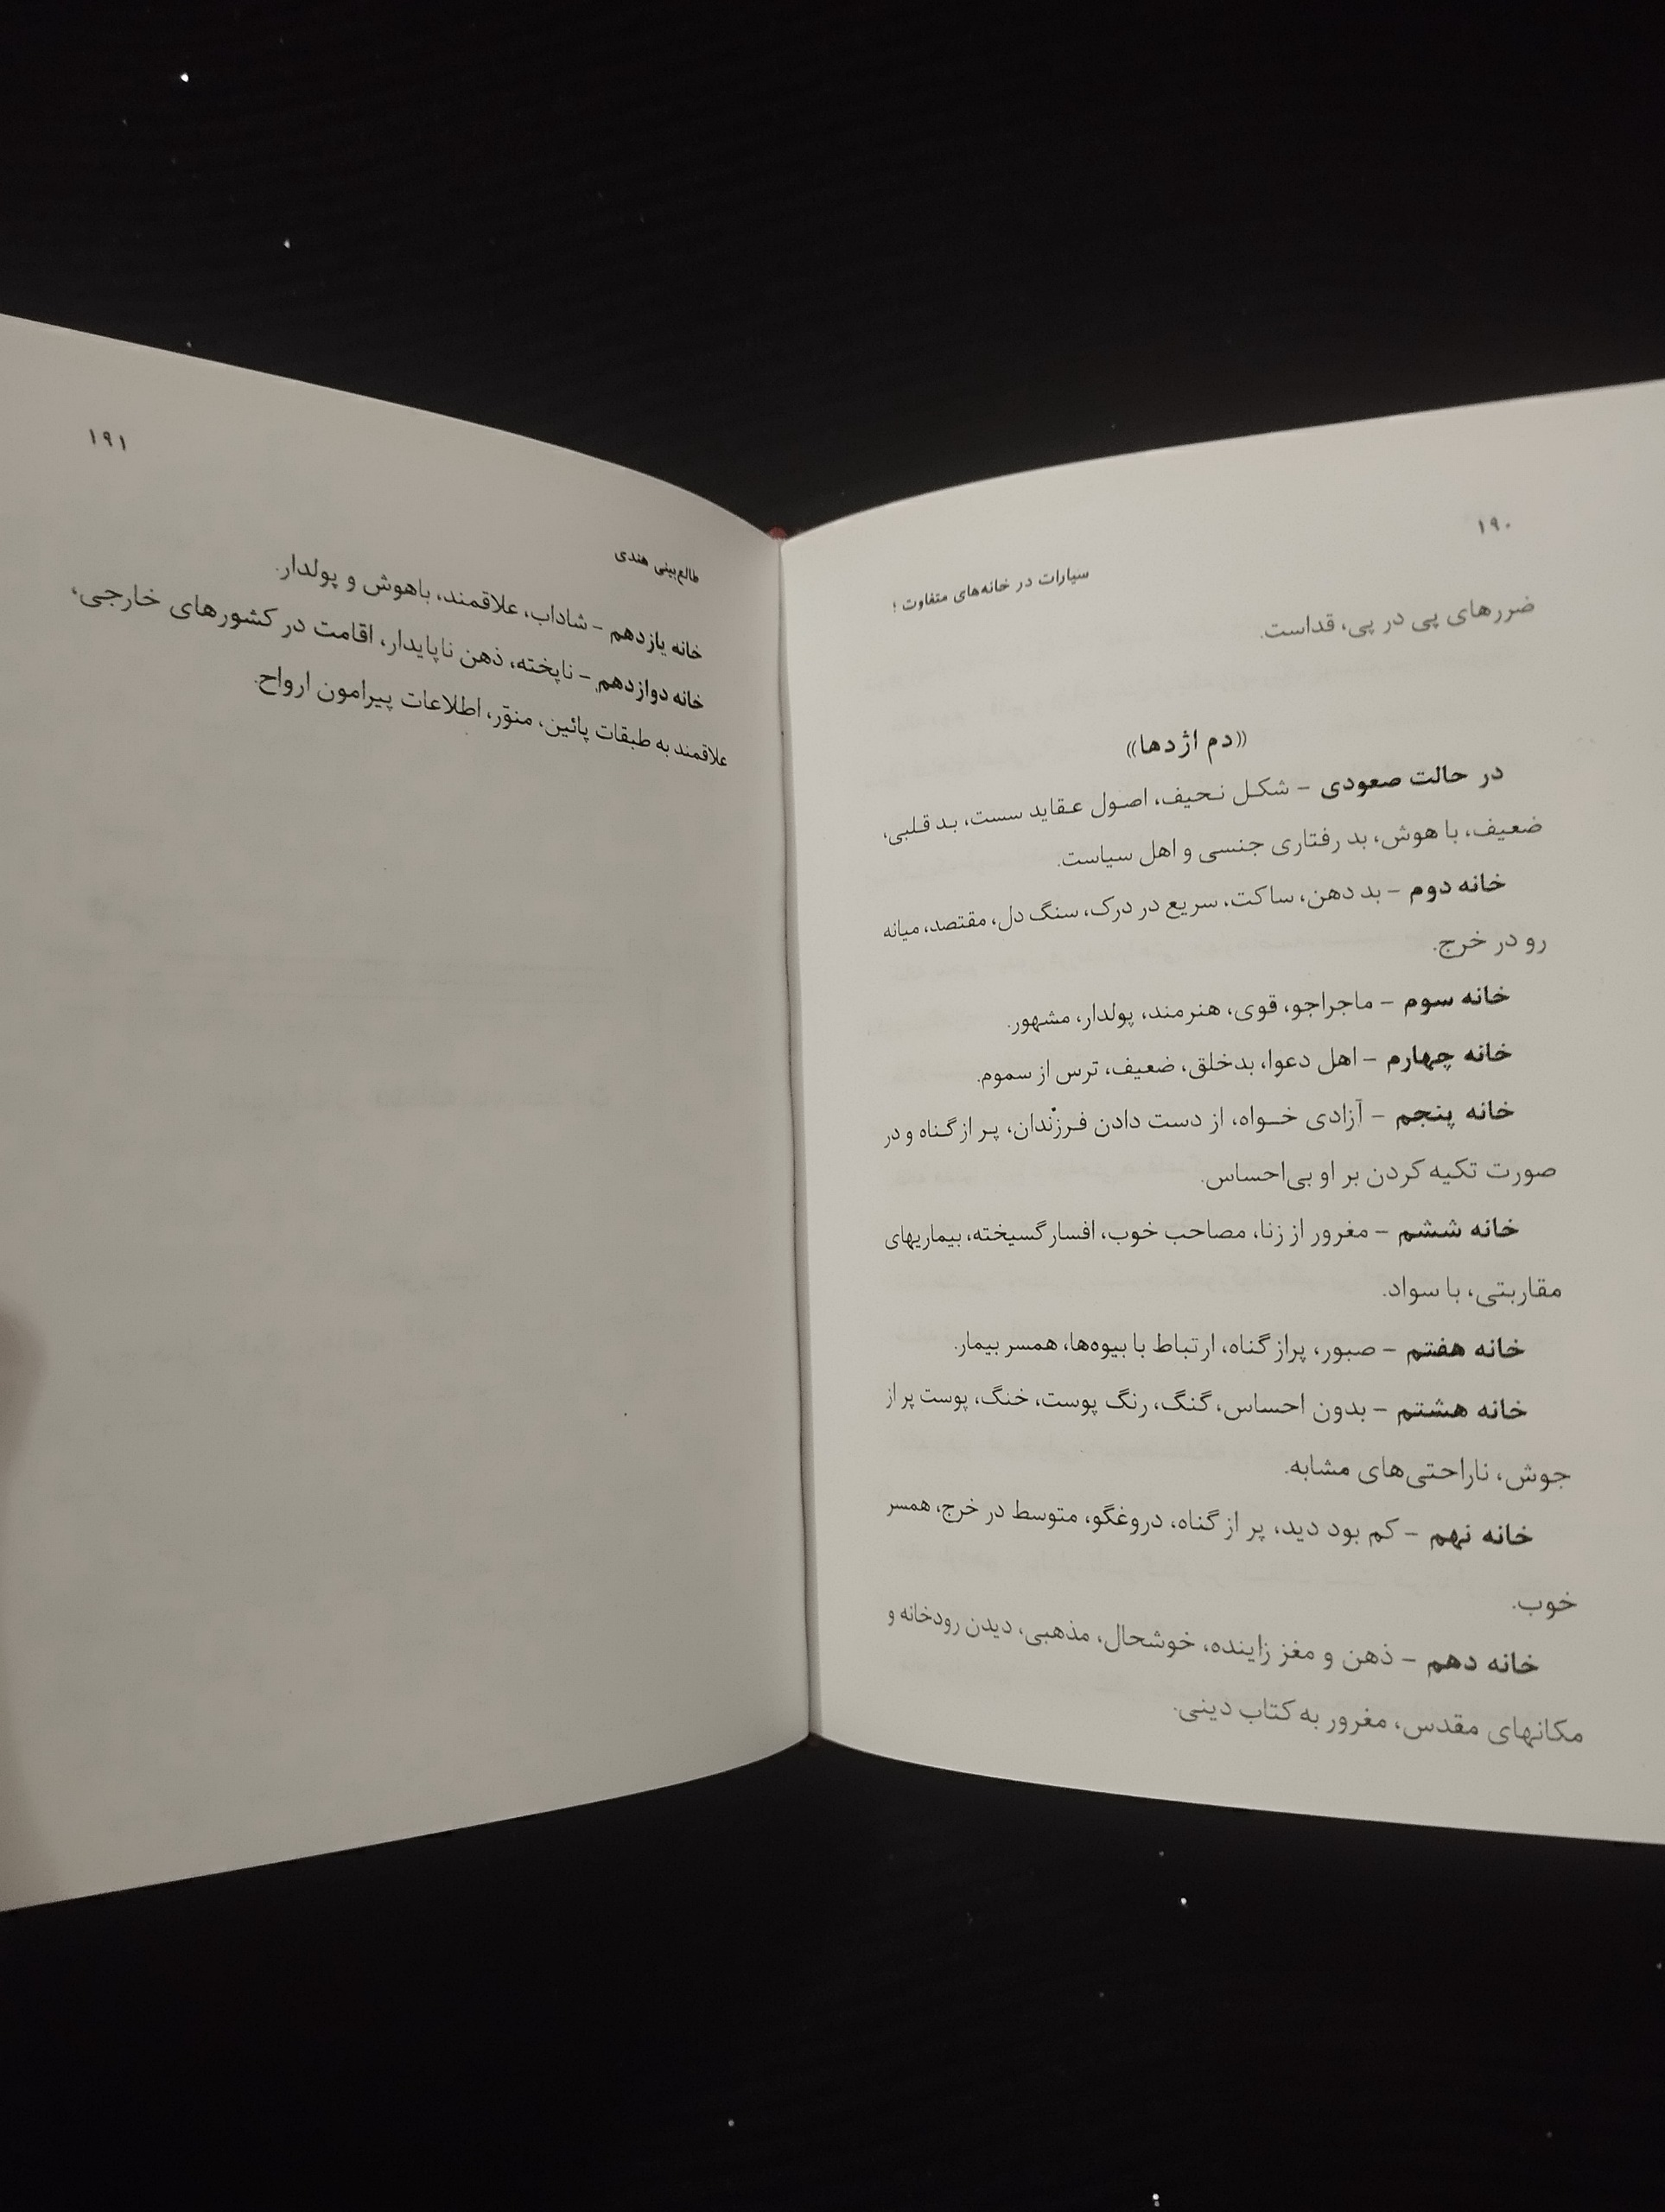 ۱۹۰
سیارات در خانه‌های متفاوت ؛
ضررهای پی در پی، قداست.
((دم اژدها))
در حالت صعودی – شکل نحیف، اصول عقاید سست، بد قلبی،
ضعیف، با هوش، بد رفتاری جنسی و اهل سیاست.
خانه دوم – بد دهن، ساکت، سریع در درک، سنگ دل، مقتصد، میانه
رو در خرج.
خانه سوم – ماجراجو، قوی، هنرمند، پولدار، مشهور.
خانه چهارم – اهل دعوا، بدخلق، ضعیف، ترس از سموم.
خانه پنجم – آزادی خواه، از دست دادن فرزندان، پر از گناه و در
صورت تکیه کردن بر او بی‌احساس.
خانه ششم – مغرور از زنا، مصاحب خوب، افسار گسیخته، بیماریهای
مقاربتی، با سواد.
خانه هفتم – صبور، پراز گناه، ارتباط با بیوه‌ها، همسر بیمار.
خانه هشتم – بدون احساس، گنگ، رنگ پوست، خنگ، پوست پر از
جوش، ناراحتی‌های مشابه.
خانه نهم – کم بود دید، پر از گناه، دروغگو، متوسط در خرج، همسر
خوب.
خانه دهم – ذهن و مغز زاینده، خوشحال، مذهبی، دیدن رودخانه و
مکانهای مقدس، مغرور به کتاب دینی.
۱۹۱
طالع‌بینی هندی
خانه یازدهم – شاداب، علاقمند، باهوش و پولدار.
خانه دوازدهم – ناپخته، ذهن ناپایدار، اقامت در کشورهای خارجی،
علاقمند به طبقات پائین، منوّر، اطلاعات پیرامون ارواح.